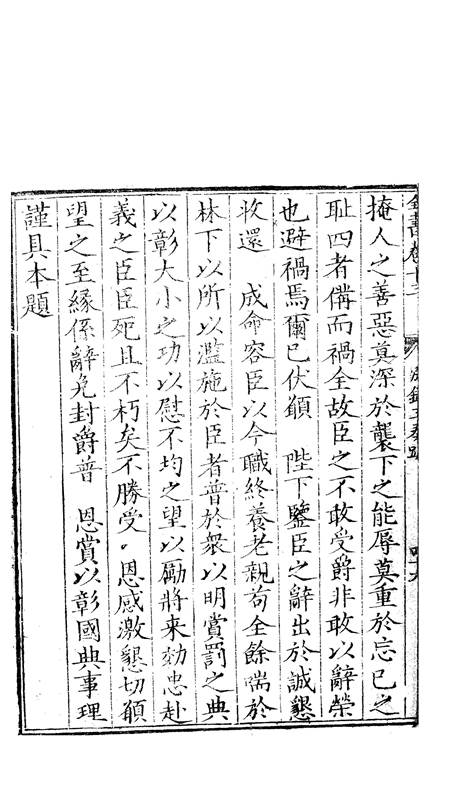 全書卷十三 別錄五奏疏 四十六
掩人之善惡莫深於襲下之能辱莫重於忘已之
耻四者備而禍全故臣之不敢受爵非敢以辭榮
也避禍焉爾已伏願 陛下鑒臣之辭出於誠懇
收還 成命容臣以今職終養老親苟全餘喘於
林下以所以濫施於臣者普於衆以明賞罰之典
以彰大小之功以慰不均之望以勵將来効忠赴
義之臣臣死且不朽矣不勝受。恩感激懇切願
望之至緣係辭免封爵普 恩賞以彰國典事理
謹具本題